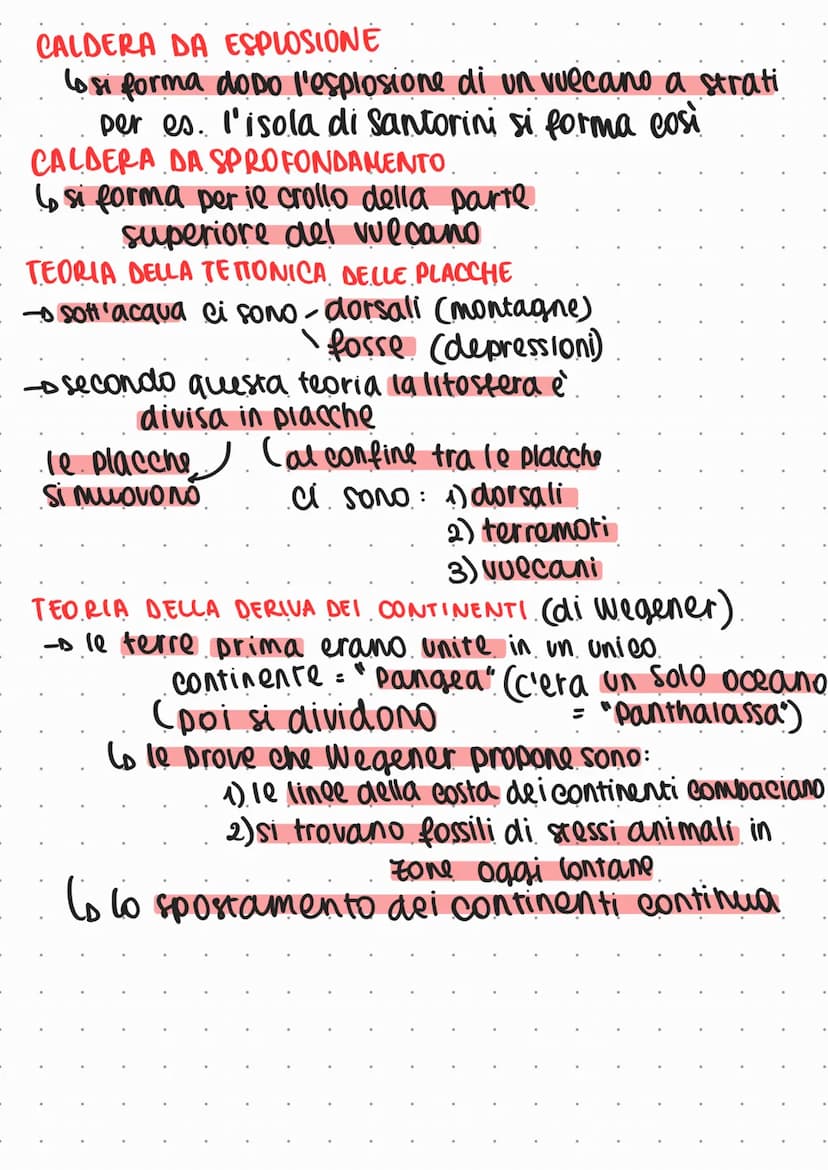 CALDERA DA ESPLOSIONE
↳ si forma dopo l'esplosione di un vulcano a strati
per es. l'isola di Santorini si forma così
CALDERA DA SPROFONDAMENTO
↳ si forma per il crollo della parte
superiore del vulcano
TEORIA DELLA TETTONICA DELLE PLACCHE
→ sott'acqua ci sono - dorsali (montagne)
\ fosse (depressioni)
→ secondo questa teoria la litosfera è
divisa in placche
le placche al confine tra le placche
si muovono ci sono: 1) dorsali
2) terremoti
3) vulcani
TEORIA DELLA DERIVA DEI CONTINENTI (di Wegener)
→ le terre prima erano unite in un unico
continente = "Pangea" (c'era un solo oceano
poi si dividono = "Panthalassa")
↳ le prove che Wegener propone sono:
1) le linee della costa dei continenti combaciano
2) si trovano fossili di stessi animali in
zone oggi lontane
↳ lo spostamento dei continenti continua